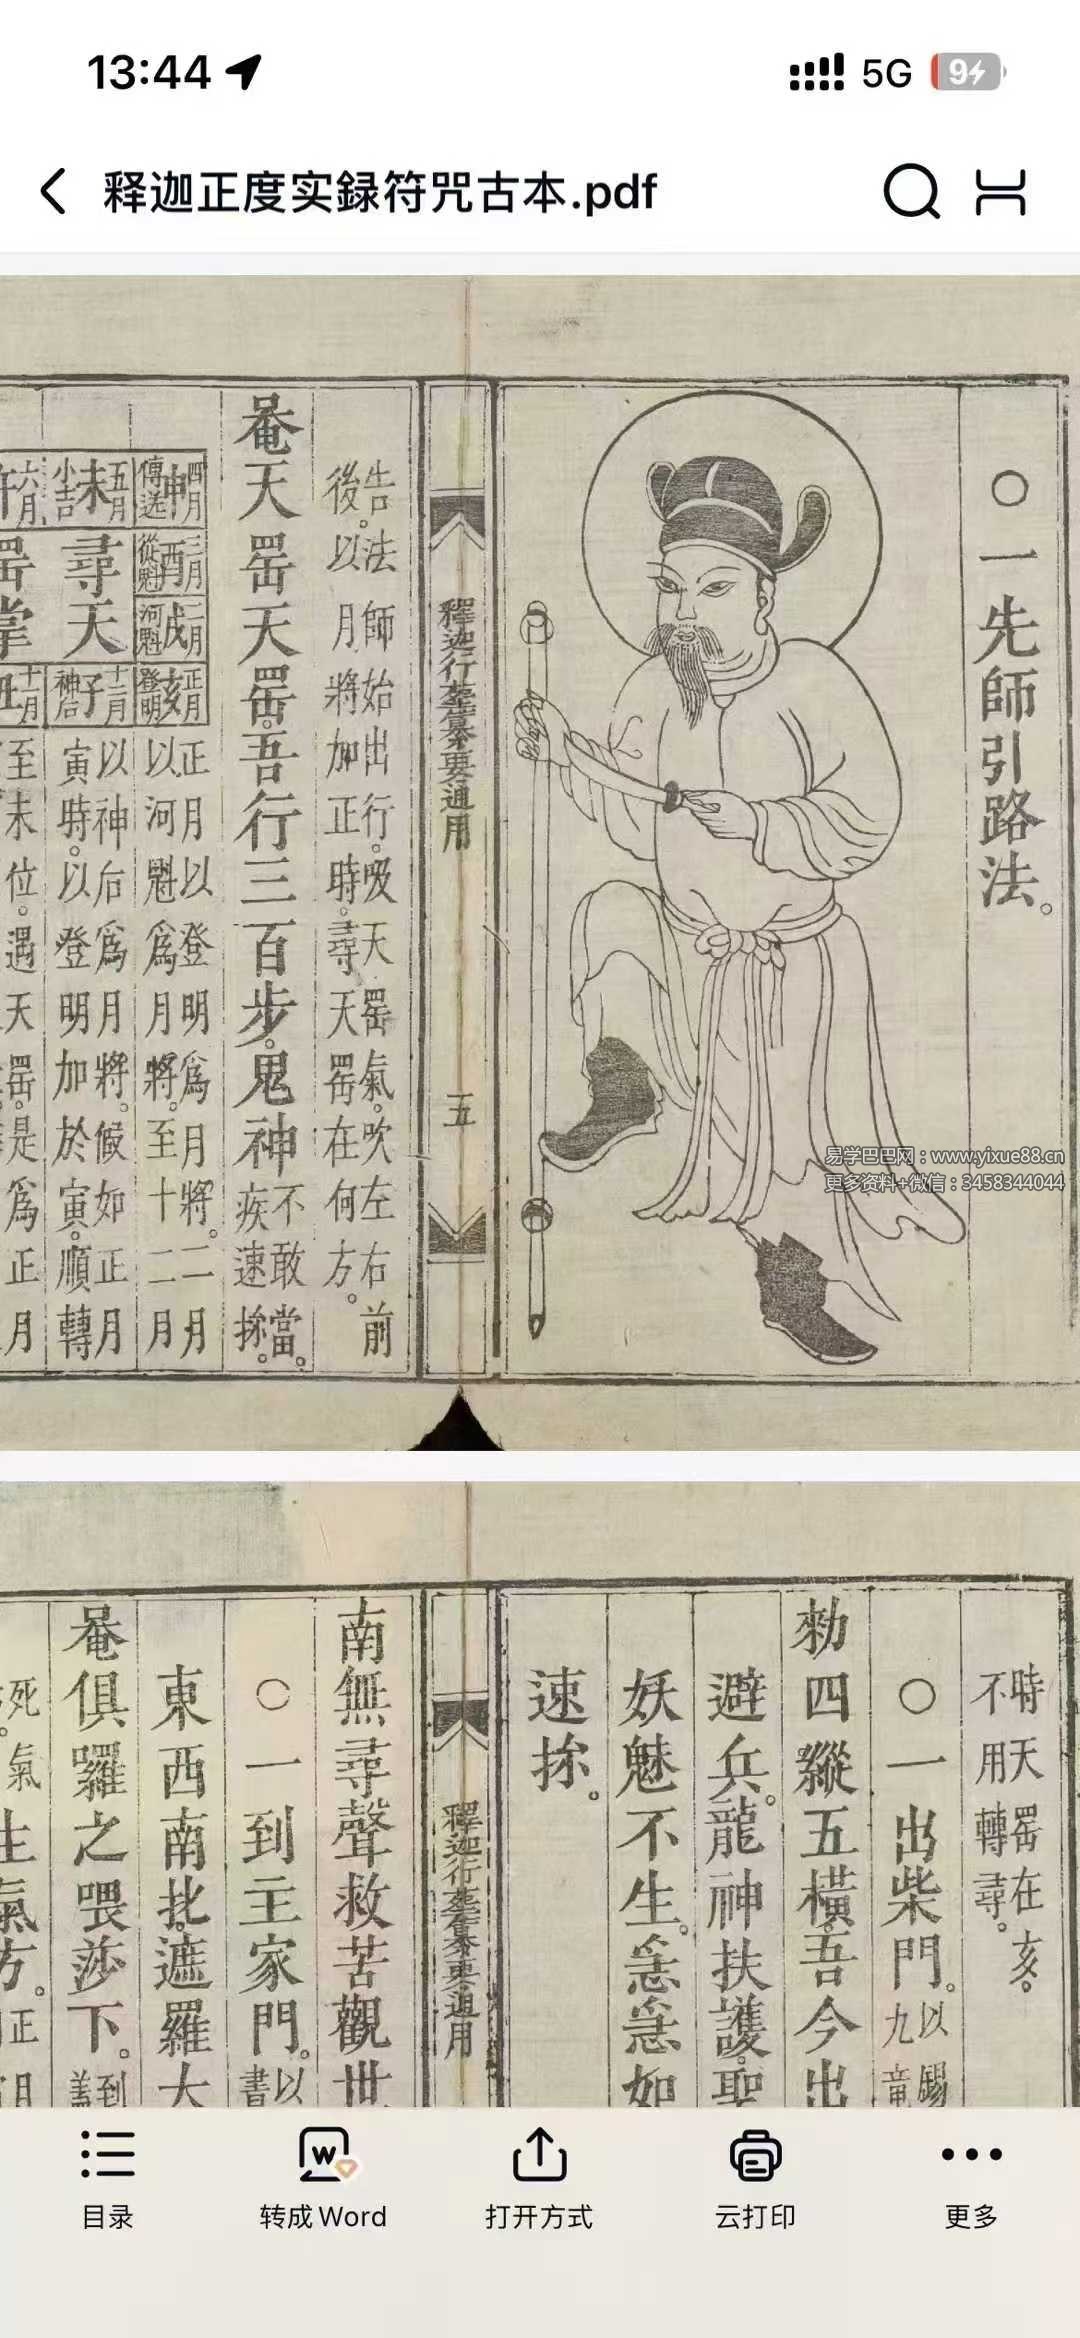 13:44
5G
9
释迦正度实録符咒古本.pdf
○一先師引路法。
易学巴巴网：www.yixue88.cn
更多资料+微信：3458344044
釋迦行塟纂要通用
五
告法師始出行。吸天罡氣。吹左右前
後。以月將加正時。尋天罡在何方。
唵天罡天罡。吾行三百步。鬼神不敢當。
疾速㑹。
四月
申
傳送
三月
酉
從魁
二月
戌
河魁
正月
亥
登明
五月
未
小吉
十二月
子
神后
六月
十一月
丑
尋天
罡掌
正月以登明爲月將。二月
以河魁爲月將。至十二月
以神后爲月將。候如正月
寅時。以登明加於寅。順轉
至未位。遇天罡。是爲正月
時天罡在亥。
不用轉尋。
○一出柴門。以錫
九竜
勑四縱五橫。吾今出
避兵。龍神扶護。聖
妖魅不生。急急如
速
釋迦行塟纂要通用
南無尋聲救苦觀世
○一到主家門。以
書
東西南北。遮羅大
唵俱囉之喂莎下。到
死氣
生氣方。正月
目录
转成Word
打开方式
云打印
更多